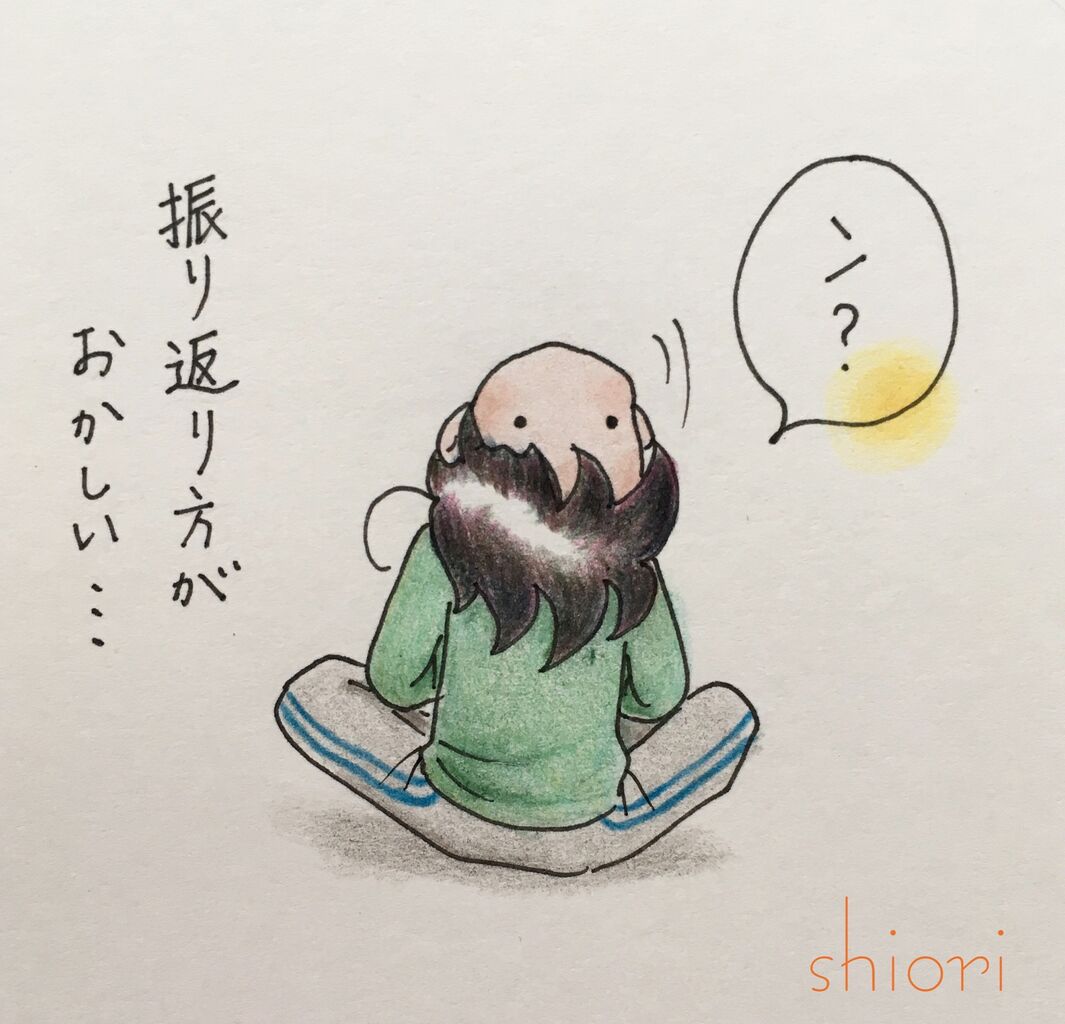 ン?
振り返り方が
おかしい…
shiori